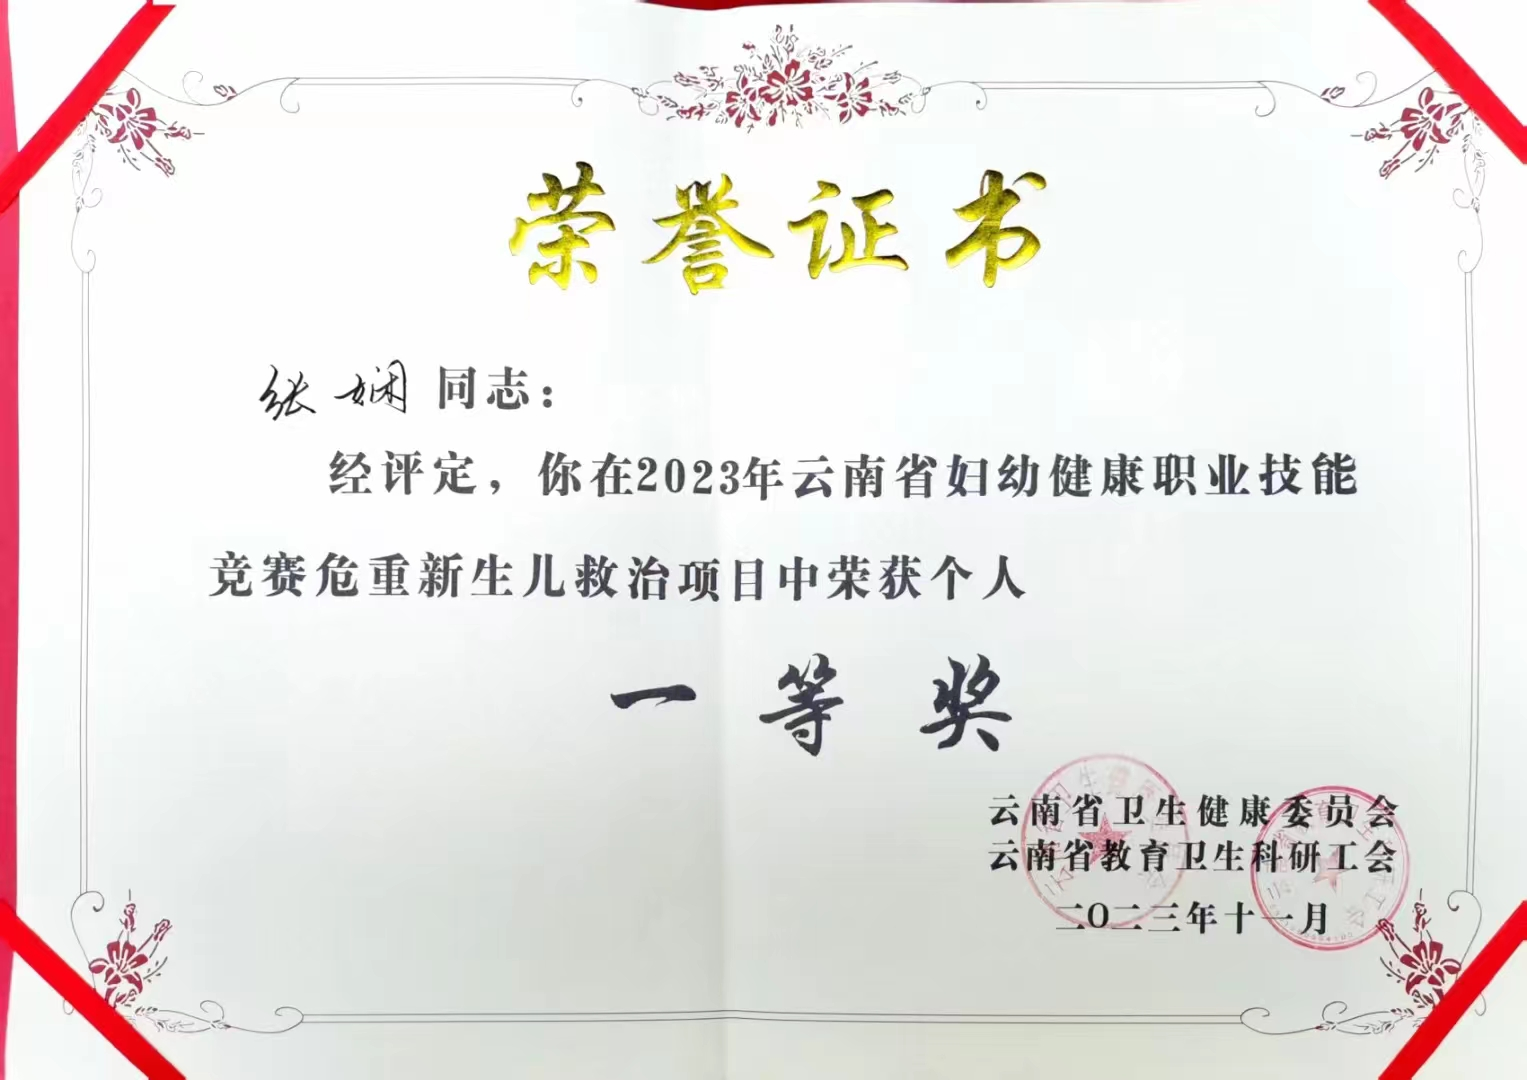 荣誉证书
张娴 同志：
经评定，你在2023年云南省妇幼健康职业技能
竞赛危重新生儿救治项目中荣获个人
一等奖
云南省卫生健康委员会
云南省教育卫生科研工会
二〇二三年十一月